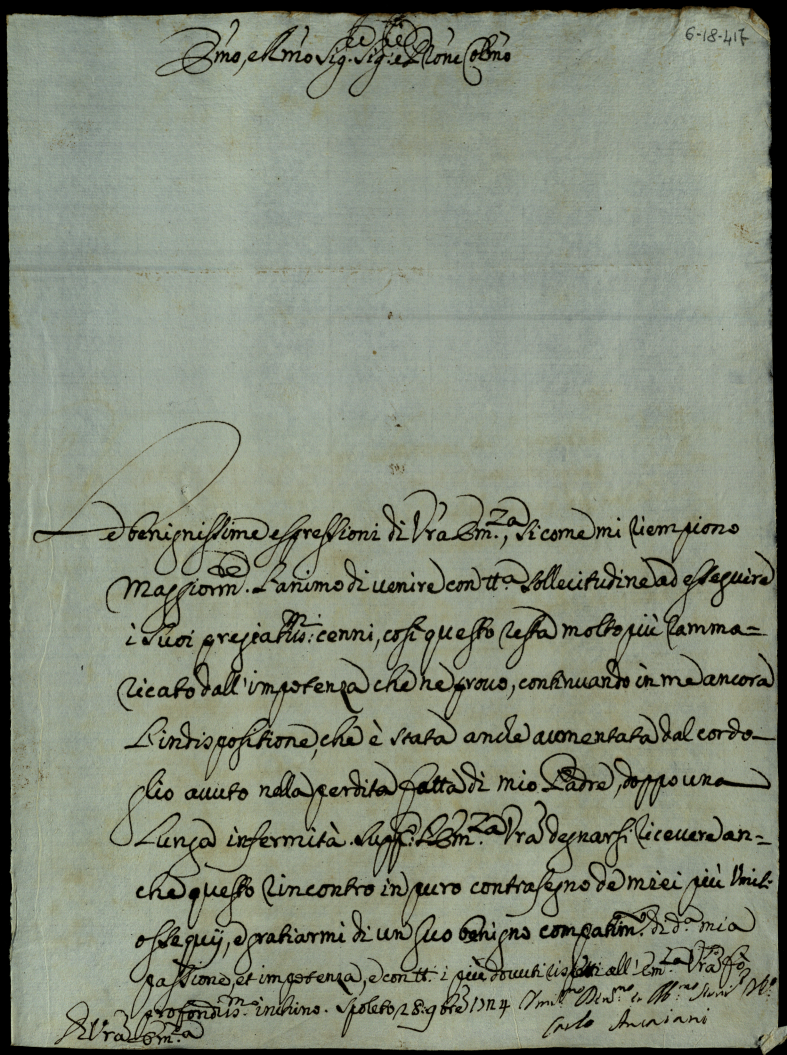 6-18-417
Emo, e Rmo Sig.re Sig.re e Prone Colmo
Le benignissime espressioni di Vra Em.za, sicome mi riempiono
maggiorm.te l'animo di venire con tt.a sollecitudine ad esseguire
i suoi pregiatiss.mi cenni, così questo resta molto più ramma=
ricato dall'impotenza che ne provo, continuando in me ancora
l'indispositione, che è stata anche aumentata dal cordo=
glio avuto nella perdita fatta di mio Padre, doppo una
lunga infermità. Supp.co l'Em.za Vra degnarsi ricevere an=
che questo rincontro in puro contrasegno de miei più umil:
ossequij, e gratiarmi di un suo benigno compatim.to di d.a mia
passione, et impotenza, e con tt.i i più dovuti rispetti all'Em.za Vra fò
profondiss.mo inchino. Spoleto 28: 9bre 1714
Di Vra Em.za
Carlo Ancaiani